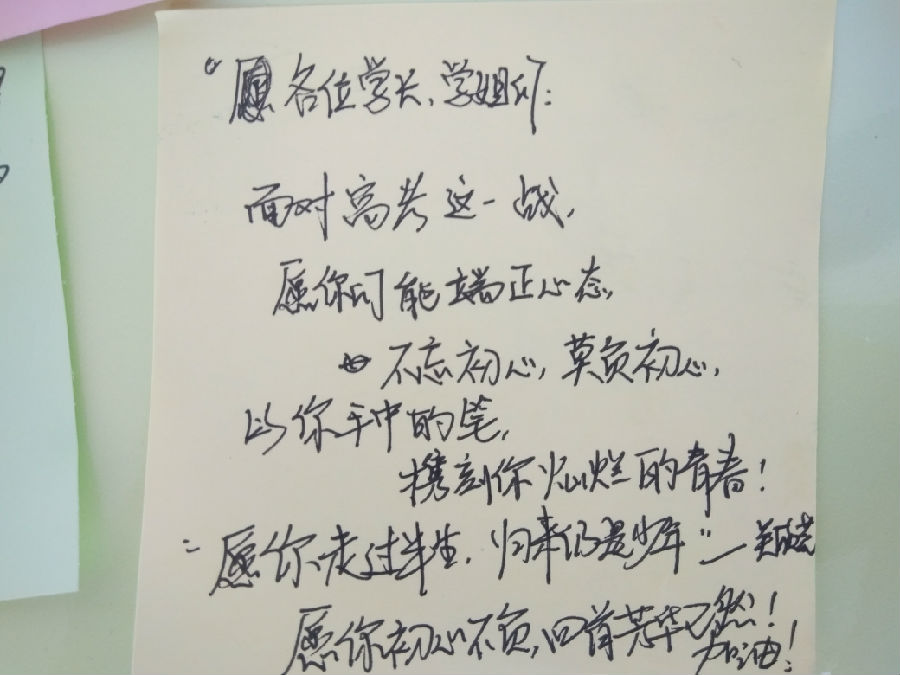 “愿各位学长、学姐们：
面对高考这一战，
愿你们能端正心态，
不忘初心，莫负初心，
以你手中的笔，
携刻你灿烂的青春！
“愿你走过半生，归来仍是少年”—
愿你初心不负，回首芳华已然！
加油！